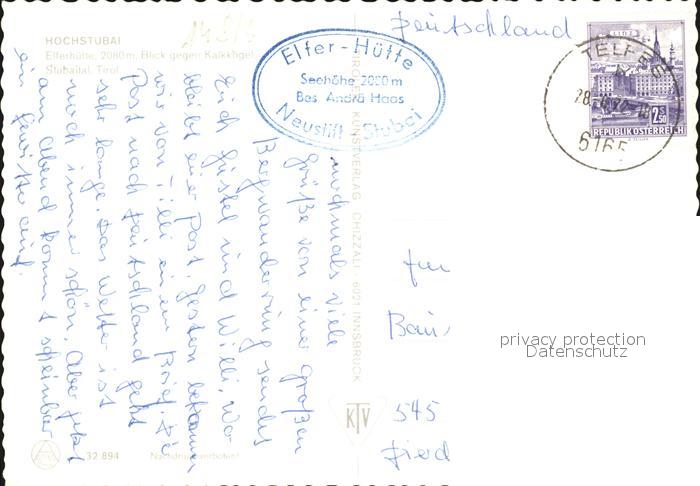 HOCHSTUBAI
Elferhütte, 2080 m, Blick gegen Kalkkögel
Stubaital, Tirol
Elfer-Hütte
Seehöhe 2080 m
Bes. Andrä Haas
Neustift - Stubai
Deutschland
TELFES
6165
LINZ
2S50
REPUBLIK ÖSTERREICH
nochmals viele
Grüße von einer großen
Bergwanderung sendet
Euch Gustel und Willi. Wo
bleibt eier Post. Gestern bekamen
wir von Tilli einen Brief. Die
Post nach Deutschland geht
sehr lange. Das Wetter ist
noch immer schön. Aber jetzt
am Abend kommt scheinbar
ein Gewitter auf.
TIROLER KUNSTVERLAG CHIZZALI 6021 INNSBRUCK
KTV
545
privacy protection
Datenschutz
32 894
Nachdruck verboten!